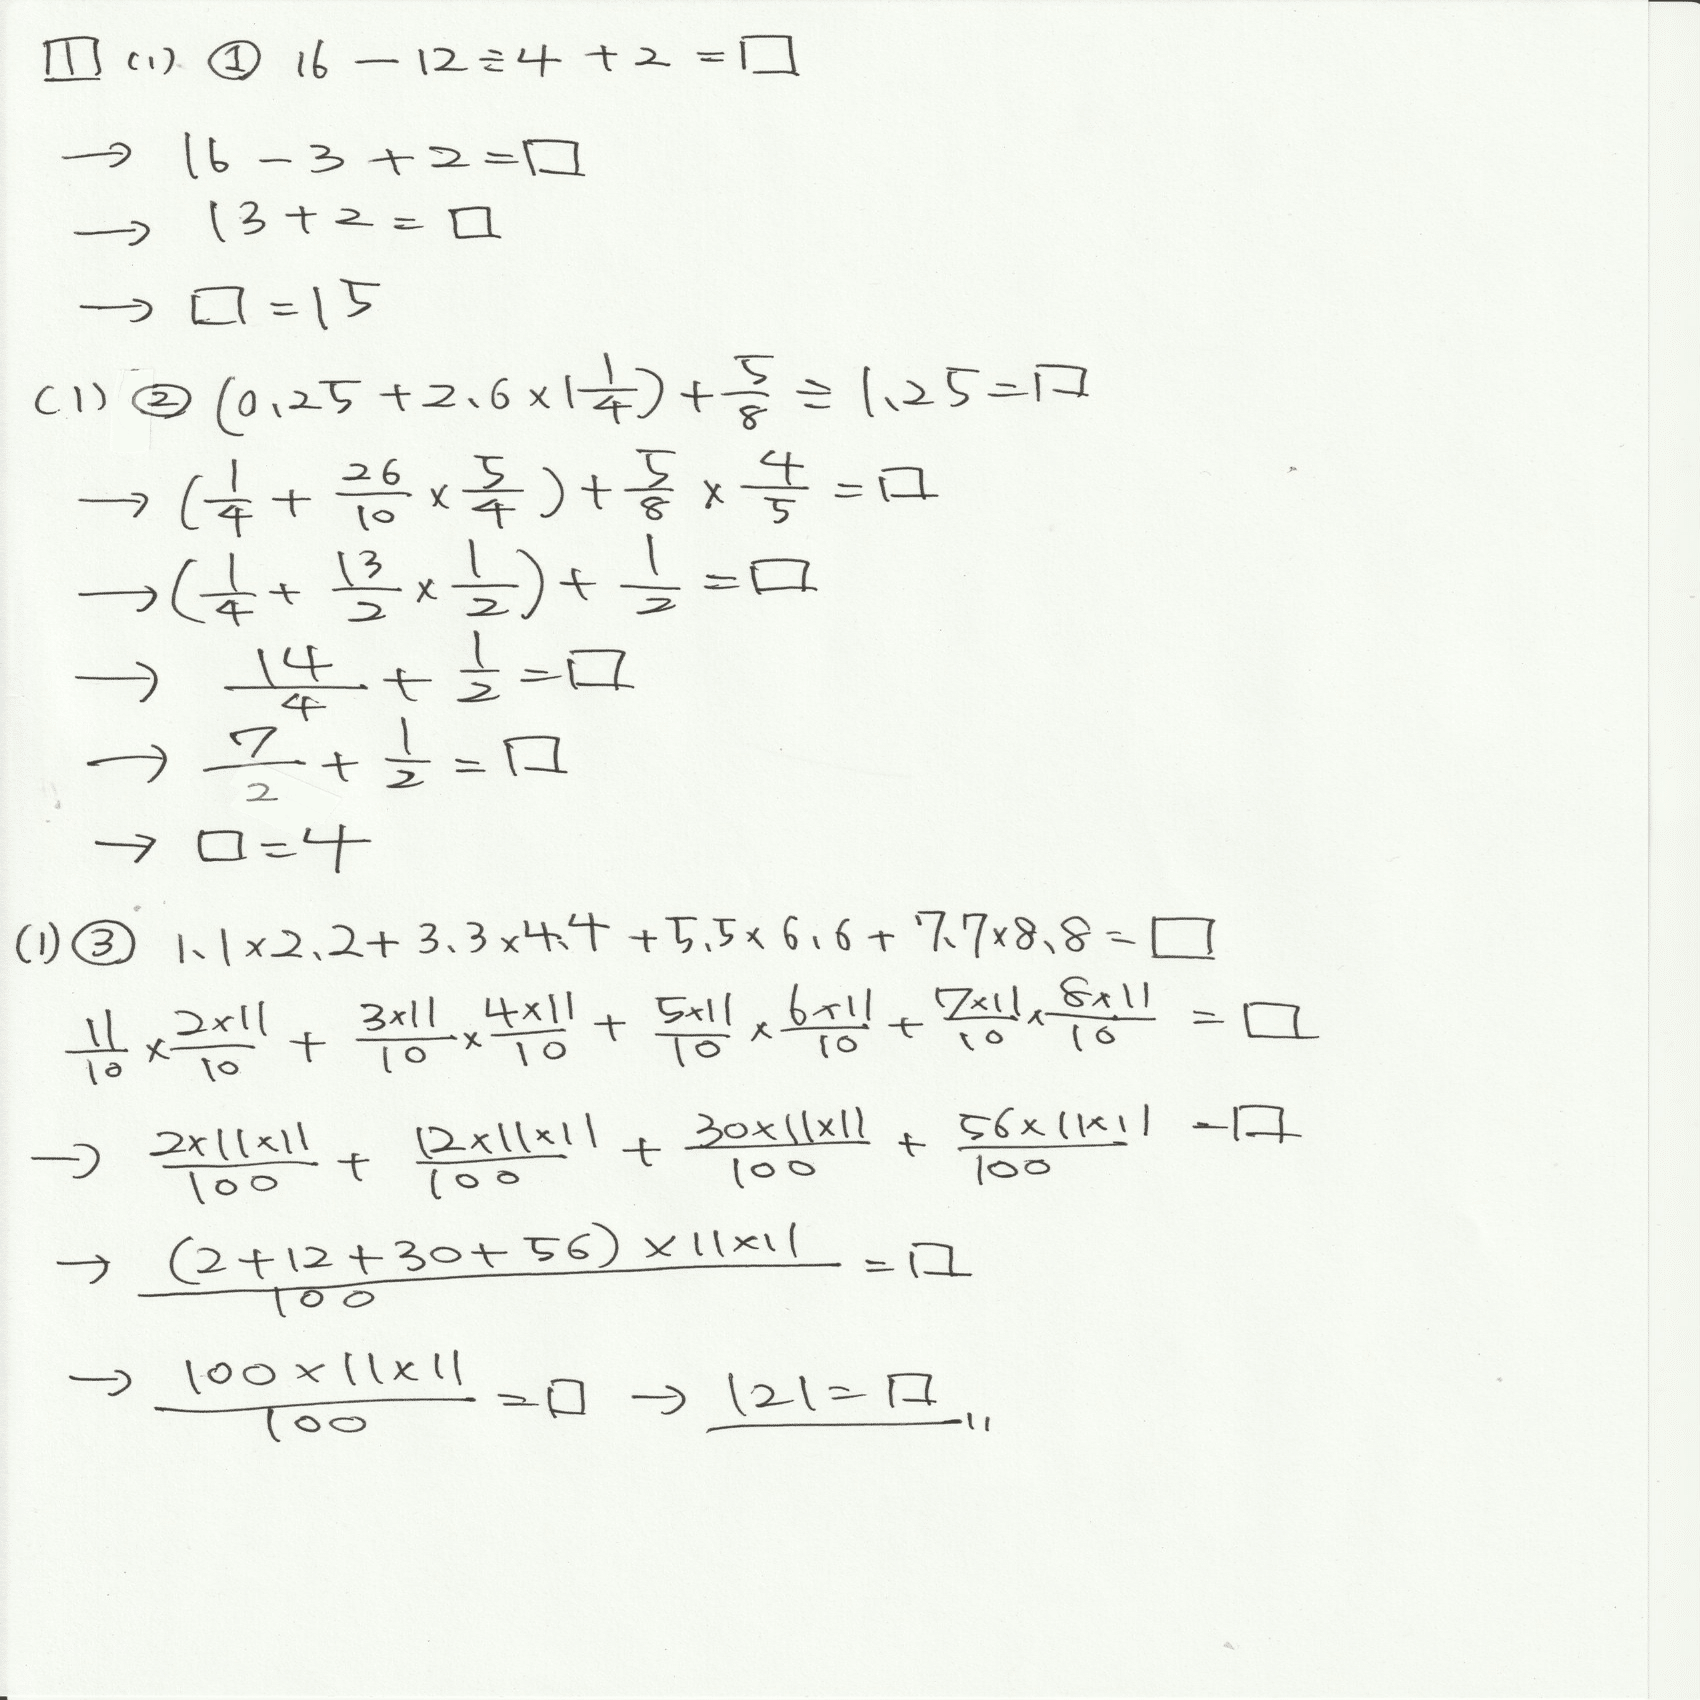 1 (1) ① 16 - 12 ÷ 4 + 2 = □
→ 16 - 3 + 2 = □
→ 13 + 2 = □
→ □ = 15
(1) ② (0.25 + 2.6 × 1 1/4) + 5/8 ÷ 1.25 = □
→ (1/4 + 26/10 × 5/4) + 5/8 × 4/5 = □
→ (1/4 + 13/2 × 1/2) + 1/2 = □
→ 14/4 + 1/2 = □
→ 7/2 + 1/2 = □
→ □ = 4
(1) ③ 1.1 × 2.2 + 3.3 × 4.4 + 5.5 × 6.6 + 7.7 × 8.8 = □
11/10 × 2×11/10 + 3×11/10 × 4×11/10 + 5×11/10 × 6×11/10 + 7×11/10 × 8×11/10 = □
→ 2×11×11/100 + 12×11×11/100 + 30×11×11/100 + 56×11×11/100 = □
→ (2+12+30+56)×11×11/100 = □
→ 100×11×11/100 = □ → 121 = □